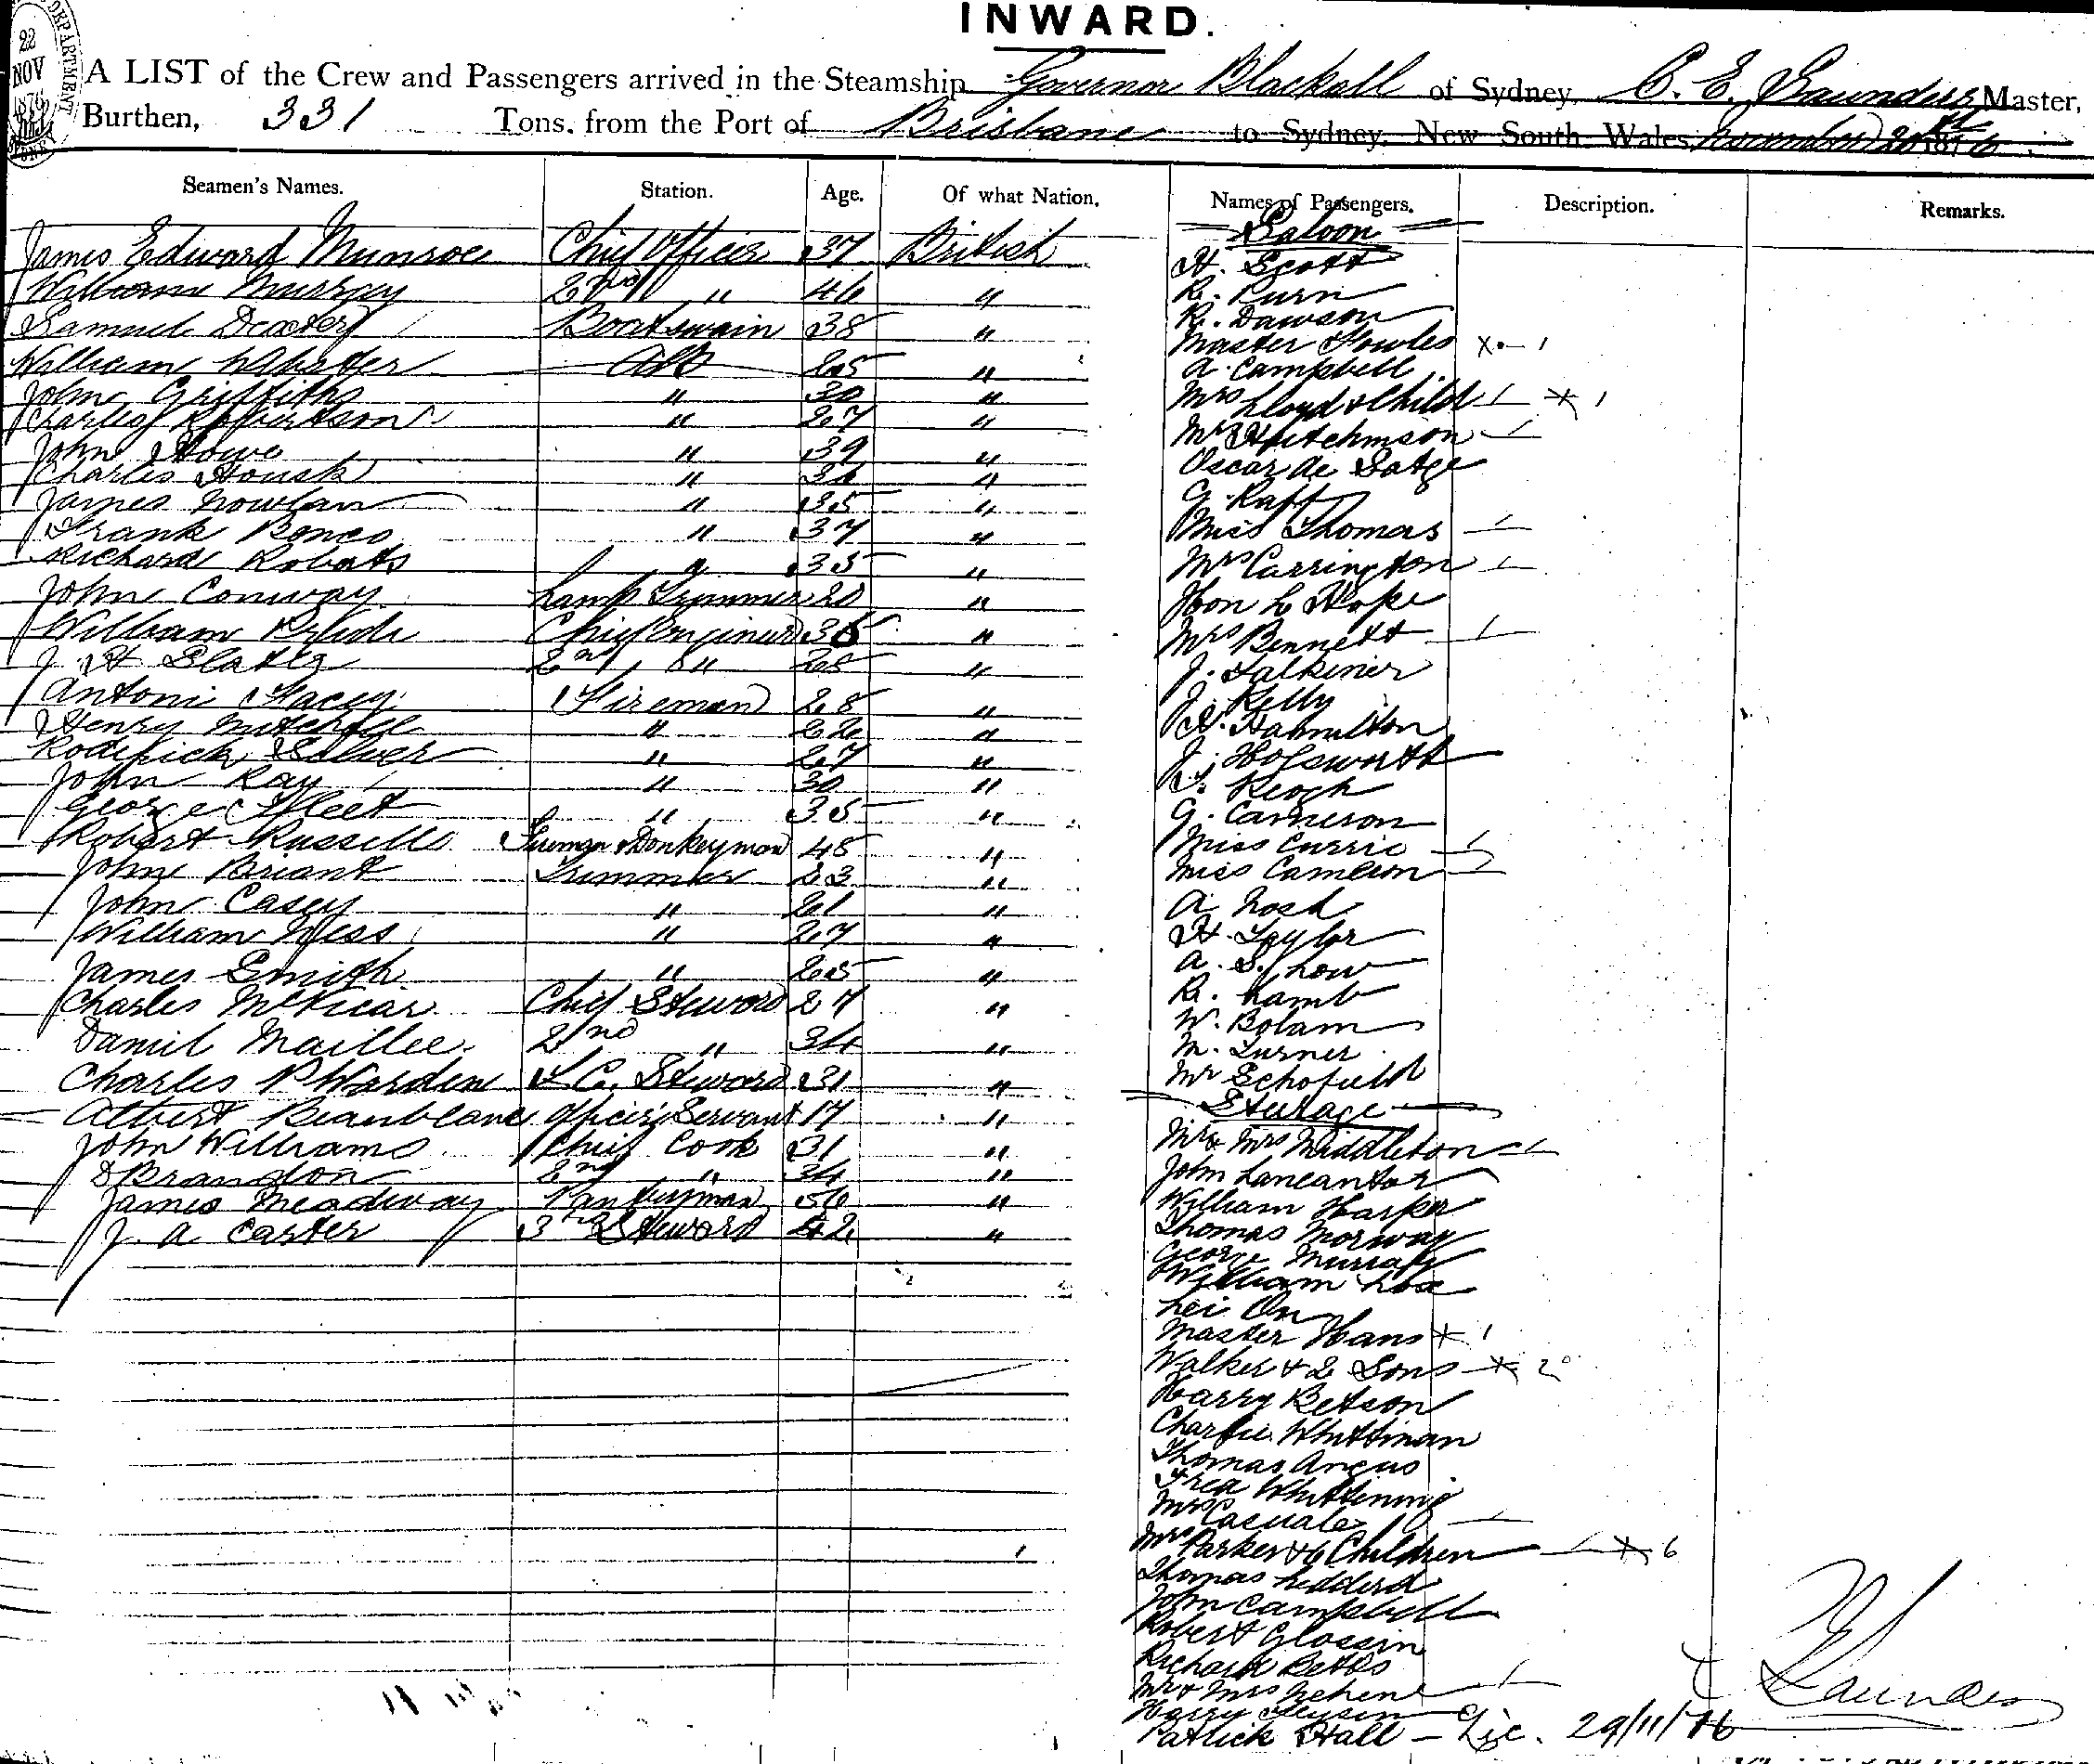 INWARD.
DEPARTMENT
22
NOV
1876
A LIST of the Crew and Passengers arrived in the Steamship Governor Blackall of Sydney, C. E. Saunders Master,
Burthen, 331 Tons, from the Port of Brisbane to Sydney, New South Wales, November 20th 1876
Seamen's Names. Station. Age. Of what Nation. Names of Passengers. Description. Remarks.
James Edward Munroe Chief Officer 37 British
William Murray 2nd " 46 "
Samuel Dexter Boatswain 38 "
William Webster AB 25 "
John Griffiths " 30 "
Charles Robertson " 27 "
John Howe " 39 "
Charles " "
James Nowlan " 35 "
Frank " 37 "
Richard Robats " 35 "
John Conway Lamp Trimmer 20 "
William Chief Engineer 36 "
J. H. Slater 2nd " 28 "
Antoni Facey Fireman 28 "
Henry Mitchell " 22 "
Roderick " 27 "
John Ray " 30 "
George Fleet " 35 "
Robert Russell Fireman & Donkeyman 48 "
John Briant Trimmer 23 "
John Casey " 21 "
William Ness " 27 "
James Smith " 25 "
Charles McVicar Chief Steward 27 "
Daniel Maillee 2nd " 34 "
Charles P Warden F C. Steward 31 "
Albert Officers Servant 17 "
John Williams Chief Cook 31 "
D Brandon 2nd " 34 "
James Meadway Pantryman 56 "
J. A Carter 3rd Steward 42 "
Saloon
H. Scott
R. Purn
R. Dawson
Master Fowles X 1
A. Campbell
Mrs Lloyd & Child 1
Mrs Hutchinson
Oscar de Satge
G. Raff
Miss Thomas
Mrs Carrington
Hon L Hope
Mrs Bennett
J. Falkiner
J. Kelly
H. Hamilton
J. Holsworth
T. Keogh
G. Cameron
Miss Currie
Miss Cameron
A.
H. Taylor
A. S. Low
R. Lamb
W. Bolam
M. Turner
Mr Schofield
Steerage
Mr & Mrs Middleton
John
William Harper
Thomas Morway
George Murray
William
Lei On
Master Hans 1
Walker & 2 Sons 2
Harry Betson
Charlie Whittiman
Thomas Angus
Fred
Mrs
Mrs Parker & 6 Children 6
Thomas
John Campbell
Robert Glossin
Richard Betts
Mr & Mrs
Harry
Patrick Hall
29/11/76
Saunders